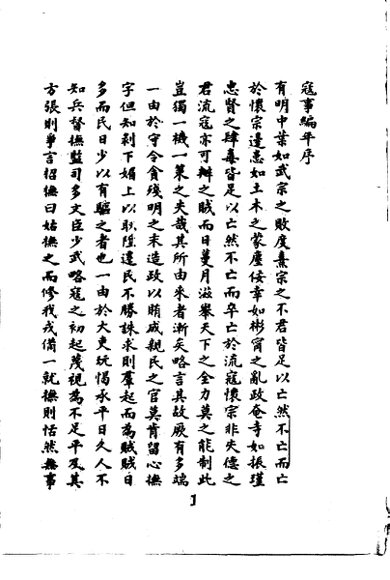 寇事編年序
有明中葉如武宗之敗度熹宗之不君皆足以亡然不亡而亡
於懷宗邊患如土木之蒙塵佞幸如彬甯之亂政奄寺如振瑾
忠賢之肆毒皆足以亡然不亡而卒亡於流寇懷宗非失德之
君流寇亦可辦之賊而日蔓月滋舉天下之全力莫之能制此
豈獨一機一策之失哉其所由來者漸矣略言其故厥有多端
一由於守令貪殘明之末造政以賄成親民之官莫肯留心撫
字但知剥下媚上以取陞遷民不勝誅求則羣起而為賊賊日
多而民日少以有驅之者也一由於大吏玩愒承平日久人不
知兵督撫監司多文臣少武略寇之初起蔑視為不足平及其
方張則爭言招撫曰姑撫之而修我戎備一就撫則恬然無事
1